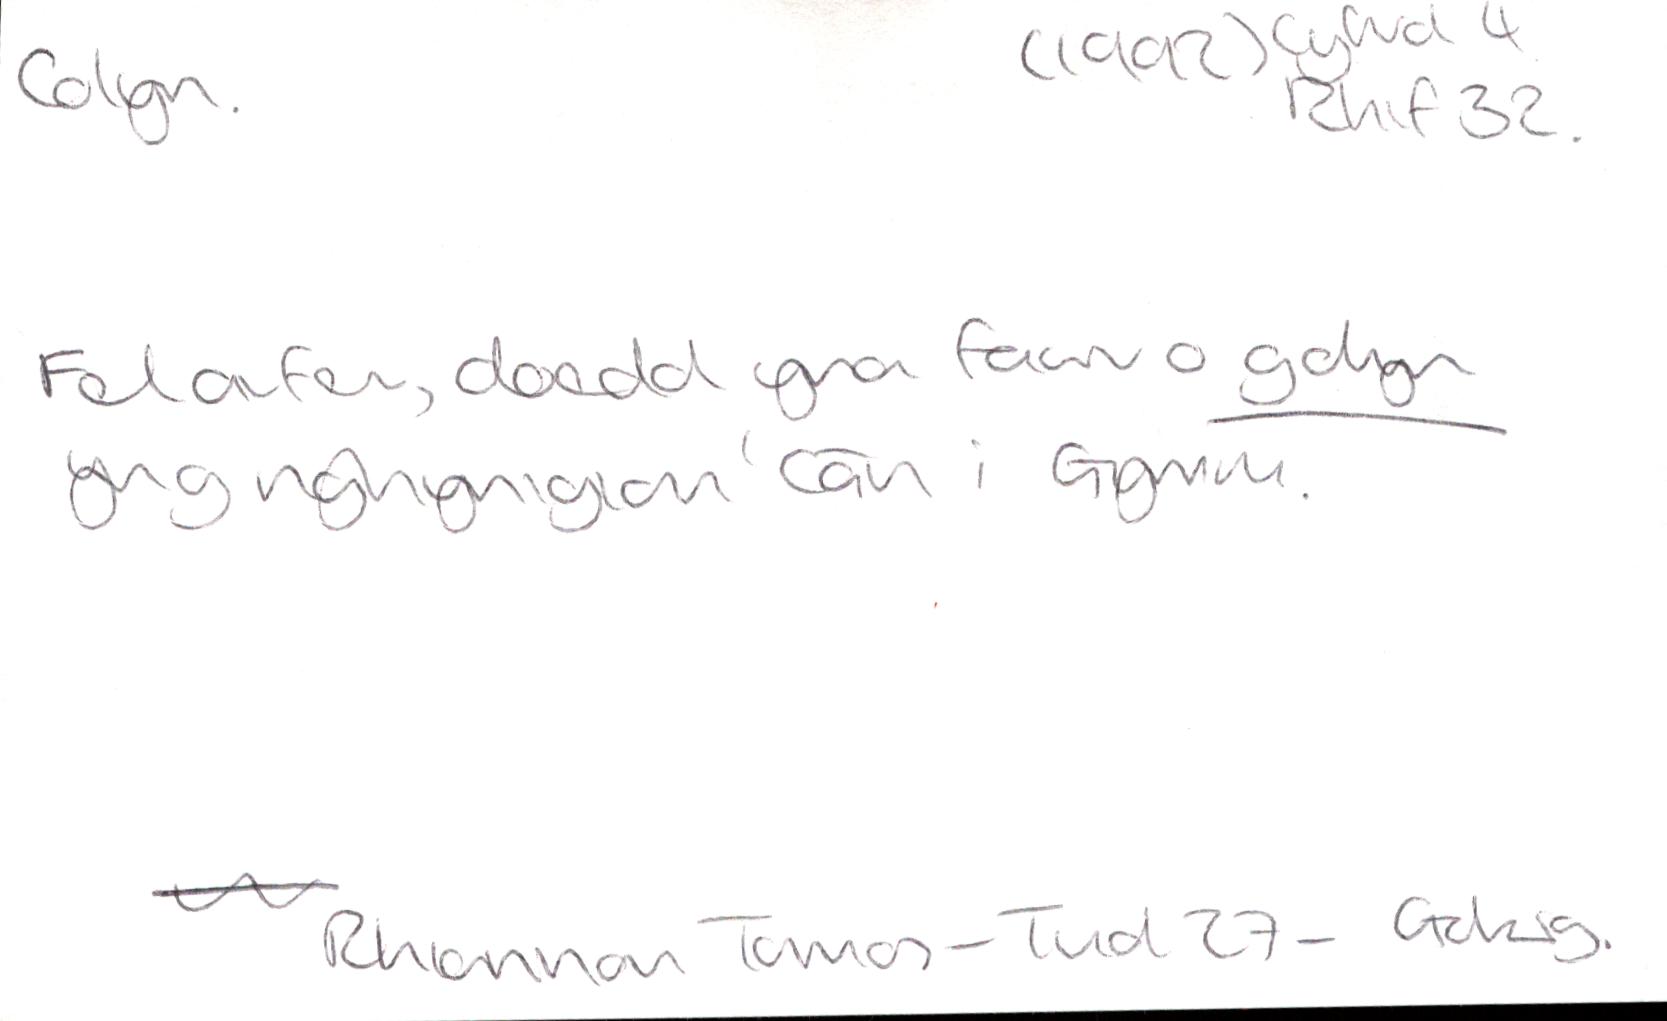 Colyn. (1992) Cyfrol 4
Rhif 32.
Fel arfer, doedd yna fawr o golyn
yng nghynigion 'Cân i Gymru.
Rhiannon Tomos – Tud 27 – Golwg.